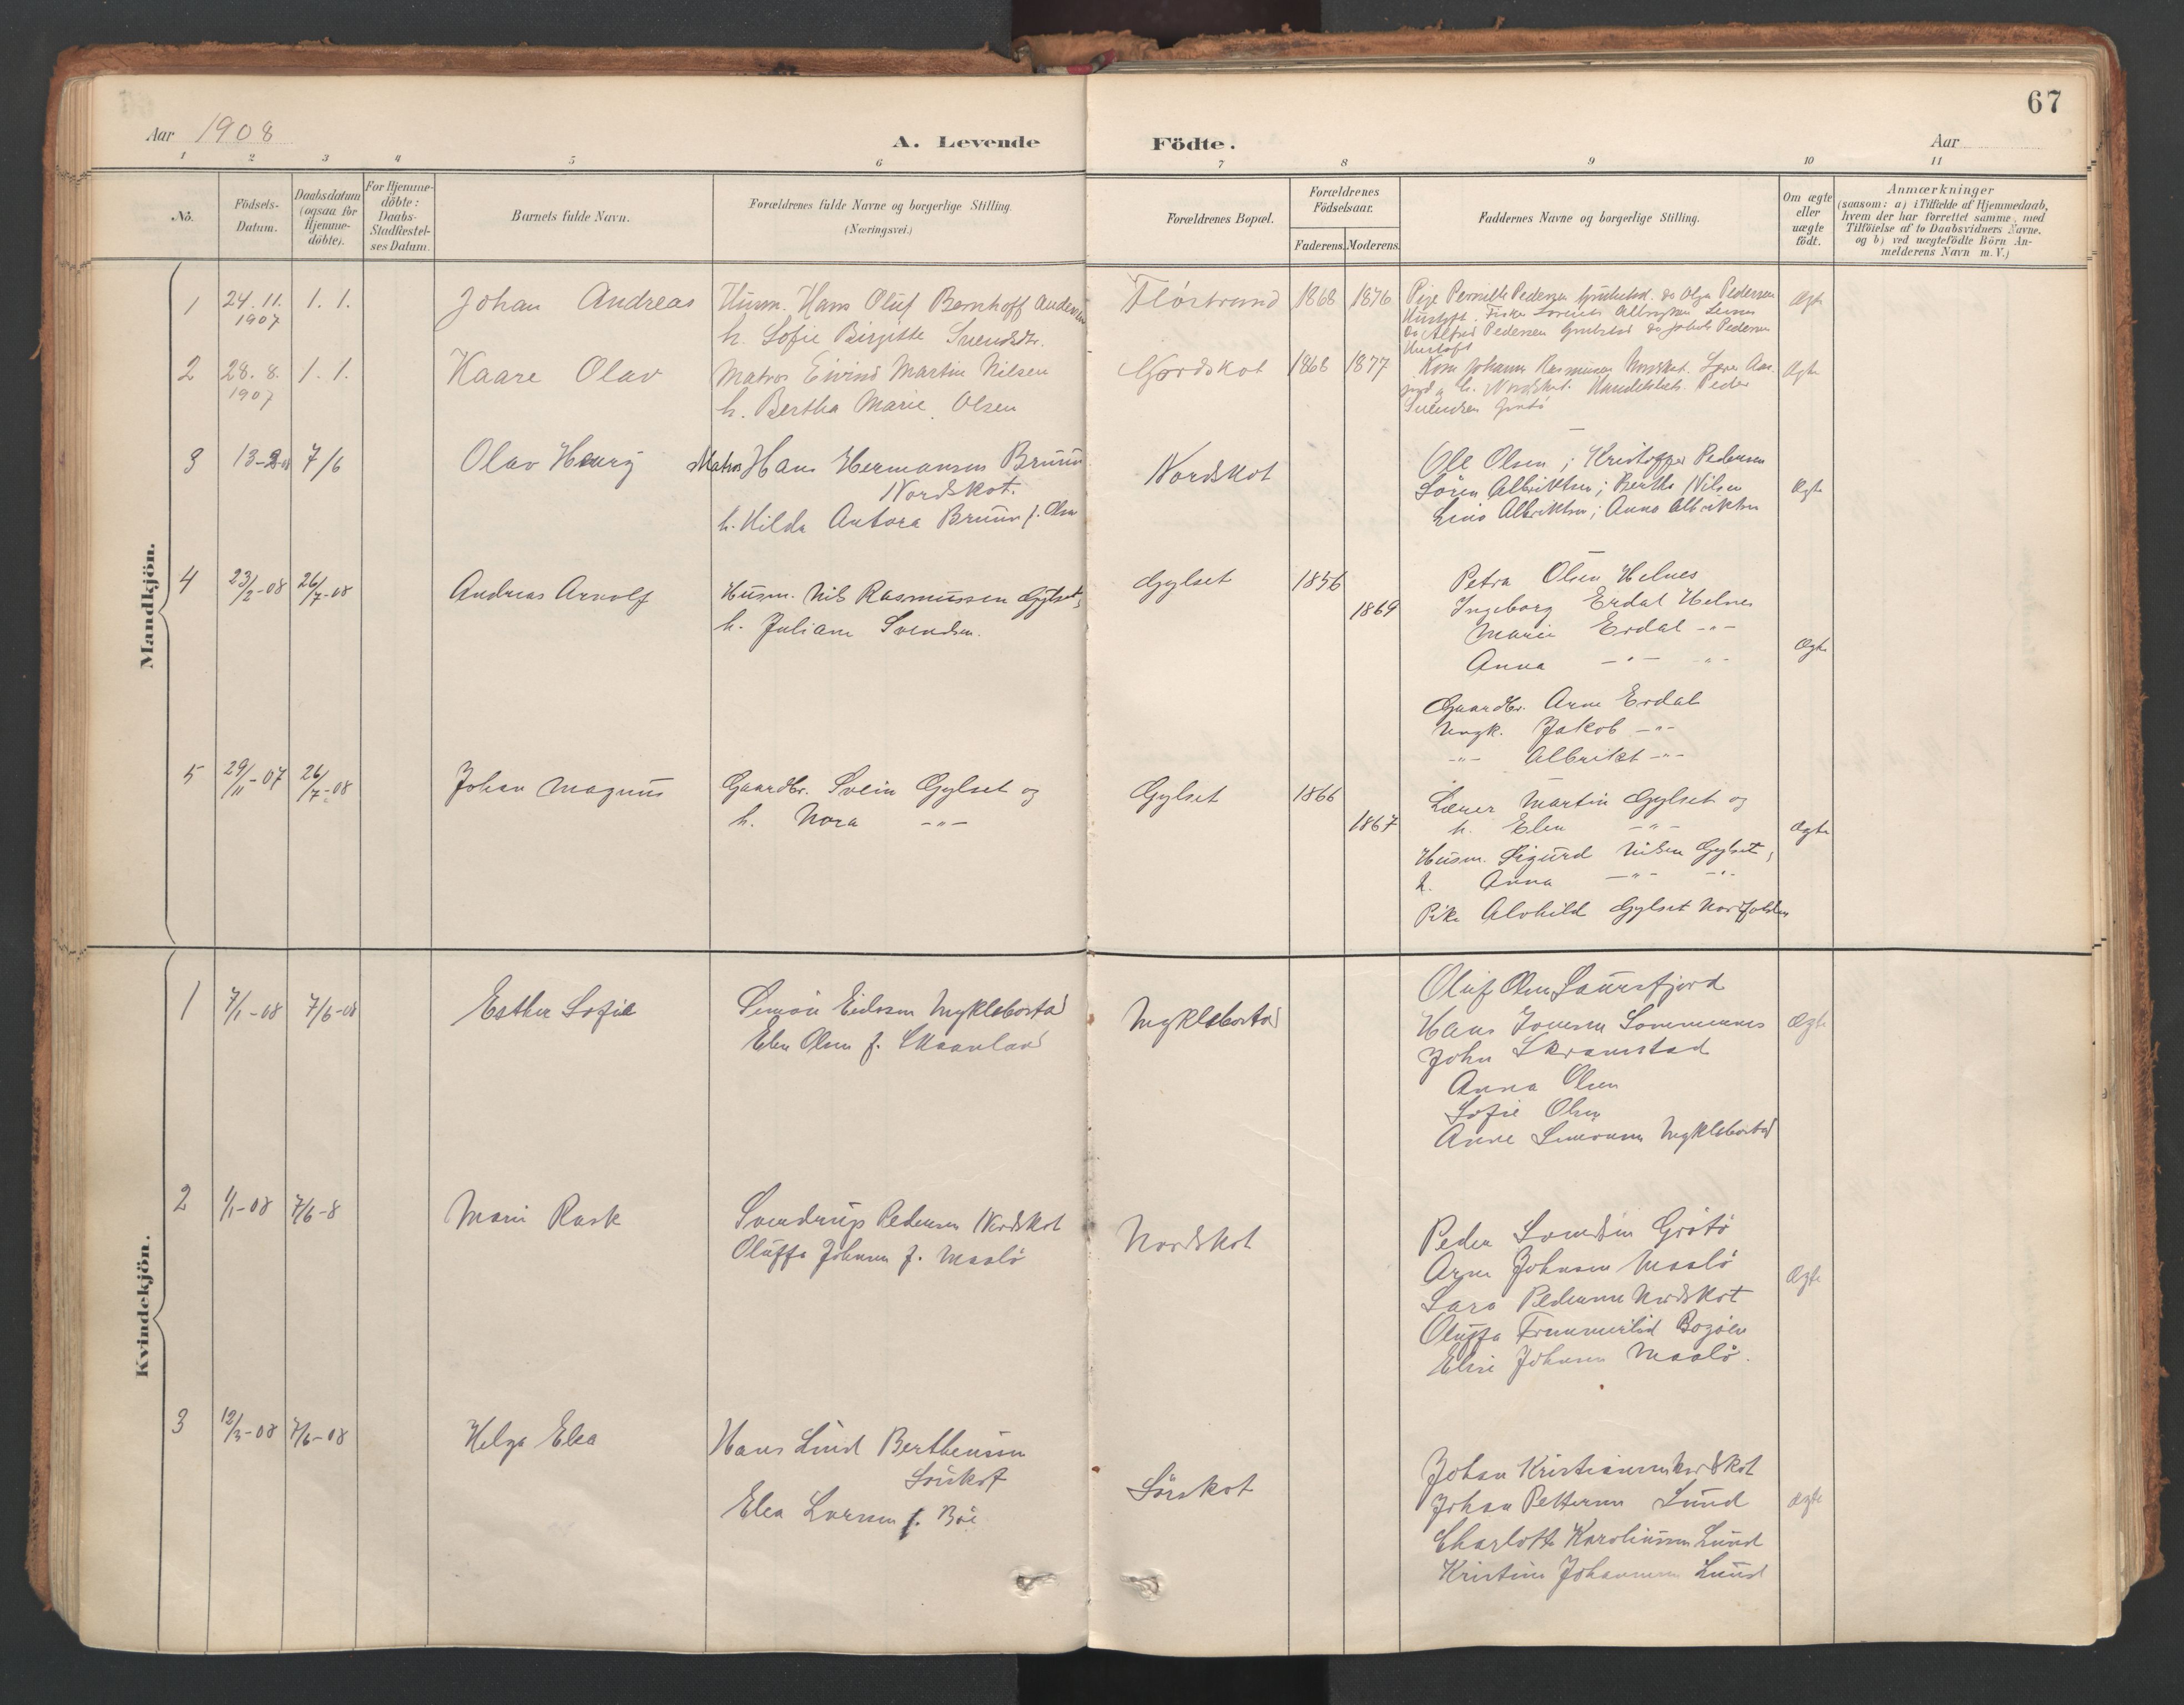 67
Aar 1908
A. Levende Födte.
Aar
1 2 3 4 5 6 7 8 9 10 11
No.
Födsels-Datum.
Daabsdatum (ogsaa for Hjemme-döbte).
For Hjemme-döbte: Daabs-Stadfæstel-ses Datum.
Barnets fulde Navn.
Forældrenes fulde Navne og borgerlige Stilling.
(Næringsvei.)
Forældrenes Bopæl.
Forældrenes Födselsaar.
Faderens. Moderens.
Faddernes Navne og borgerlige Stilling.
Om ægte eller uægte födt.
Anmærkninger
(saasom: a) i Tilfælde af Hjemmedaab,
hvem der har forrettet samme, med
Tilföielse af to Daabsvidners Navne,
og b) ved uægtefödte Börn An-
melderens Navn m. V.)
Mandkjön.
1 24.11. 1907 1.1. Johan Andreas
Husm. Hans Oluf Bernhoff Andersen
h. Sofie Birgitte Svendsdr.
Flöstrand 1868 1876
Pige Pernille Pedersen do Olga Pedersen
Fisker
do Alfred Pedersen do Jakob Pedersen
Ægte
2 28.8. 1907 1.1. Kaare Olav
Matros Eivind Martin Nilsen
h. Bertha Marie Olsen
Nordskot 1868 1877
Kone Johanna Rasmussen Nordskot.
h. Nordskot. Peder
Svendsen Grötö
Ægte
3 13-2-08 7/6 Olav Henry
Matros Hans Hermansen Bruun
Nordskot.
h. Hilda Antora Bruun f. Olsen
Nordskot
Ole Olsen; Kristoffer Pedersen
Sören Albriktsen; Bertha Nilsen
Lina Albriktsen; Anna Albriktsen
Ægte
4 23/2-08 26/7-08 Andreas Arnolf
Husm. Nils Rasmussen Gylset,
h. Juliane Svendsen.
Gylset 1856
1869
Petra Olsen Helnes
Ingeborg Erdal Helnes
Marie Erdal -"-
Anna -"- -"-
Ægte
Gaardbr. Arne Erdal
Ungk. Jakob -"-
-"- Albrikt -"-
5 29/11-07 26/7-08 Johan Magnus
Gaardbr. Svein Gylset og
h. Nora -"-
Gylset 1866
1867
Lærer Martin Gylset og
h. Elen -"-
Husm. Sigurd Nilsen Gylset,
h. Anna -"- -"-
Pike Alvhild Gylset Nordfolden
Ægte
Kvindekjön.
1 7/1-08 7/6-08 Esther Sofie
Simon Myklebostad
Elen Olsen f. Skaanland
Myklebostad
Oluf Olsen
Hans Jonsen Sommernes
John Skramstad
Anna Olsen
Sofie Olsen
Anne Simonsen Myklebostad
Ægte
2 1/1-08 7/6-8 Marie Rask
Svendrup Pedersen Nordskot
Oluffa Johnsen f. Maalö
Nordskot
Peder Svendsen Grötö
Arne Johnsen Maalö
Sara Pedersen Nordskot
Oluffa Bogöen
Elise Johnsen Maalö.
Ægte
3 12/3-08 7/6-08 Helga Elea
Hans Lind Bertheussen
Sörskot
Elea Larsen f. Böe
Sörskot
Johan Kristiansen Nordskot
Johan Pettersen Lund
Charlotte Karoliussen Lund
Kristine Johannesen Lund
Ægte